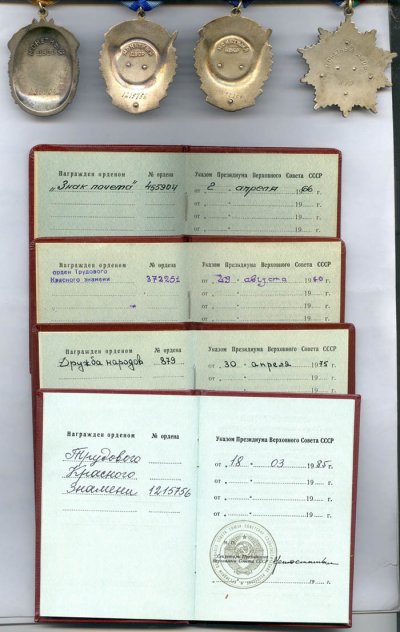 МОНЕТНЫЙ
ДВОР
МОНЕТНЫЙ
ДВОР
1215756
МОНЕТНЫЙ
ДВОР
Награжден орденом № ордена
"Знак почета" 455904
Указом Президиума Верховного Совета СССР
от „ 2 " апреля 1966 г.
от „ " 19 г.
от „ " 19 г.
Награжден орденом № ордена
орден Трудового
Красного знамени 373251
Указом Президиума Верховного Совета СССР
от „ 29 " августа 19 г.
от „ " 19 г.
от „ " 19 г.
Награжден орденом № ордена
Дружба народов 879
Указом Президиума Верховного Совета СССР
от „ 30 " апреля 1975 г.
от „ " 19 г.
Награжден орденом № ордена
Трудового
Красного
Знамени 1215756
Указом Президиума Верховного Совета СССР
от „ 18 " 03 1985 г.
от „ " 19 г.
от „ " 19 г.
М. П.
Секретарь Президиума
Верховного Совета СССР
19 г.